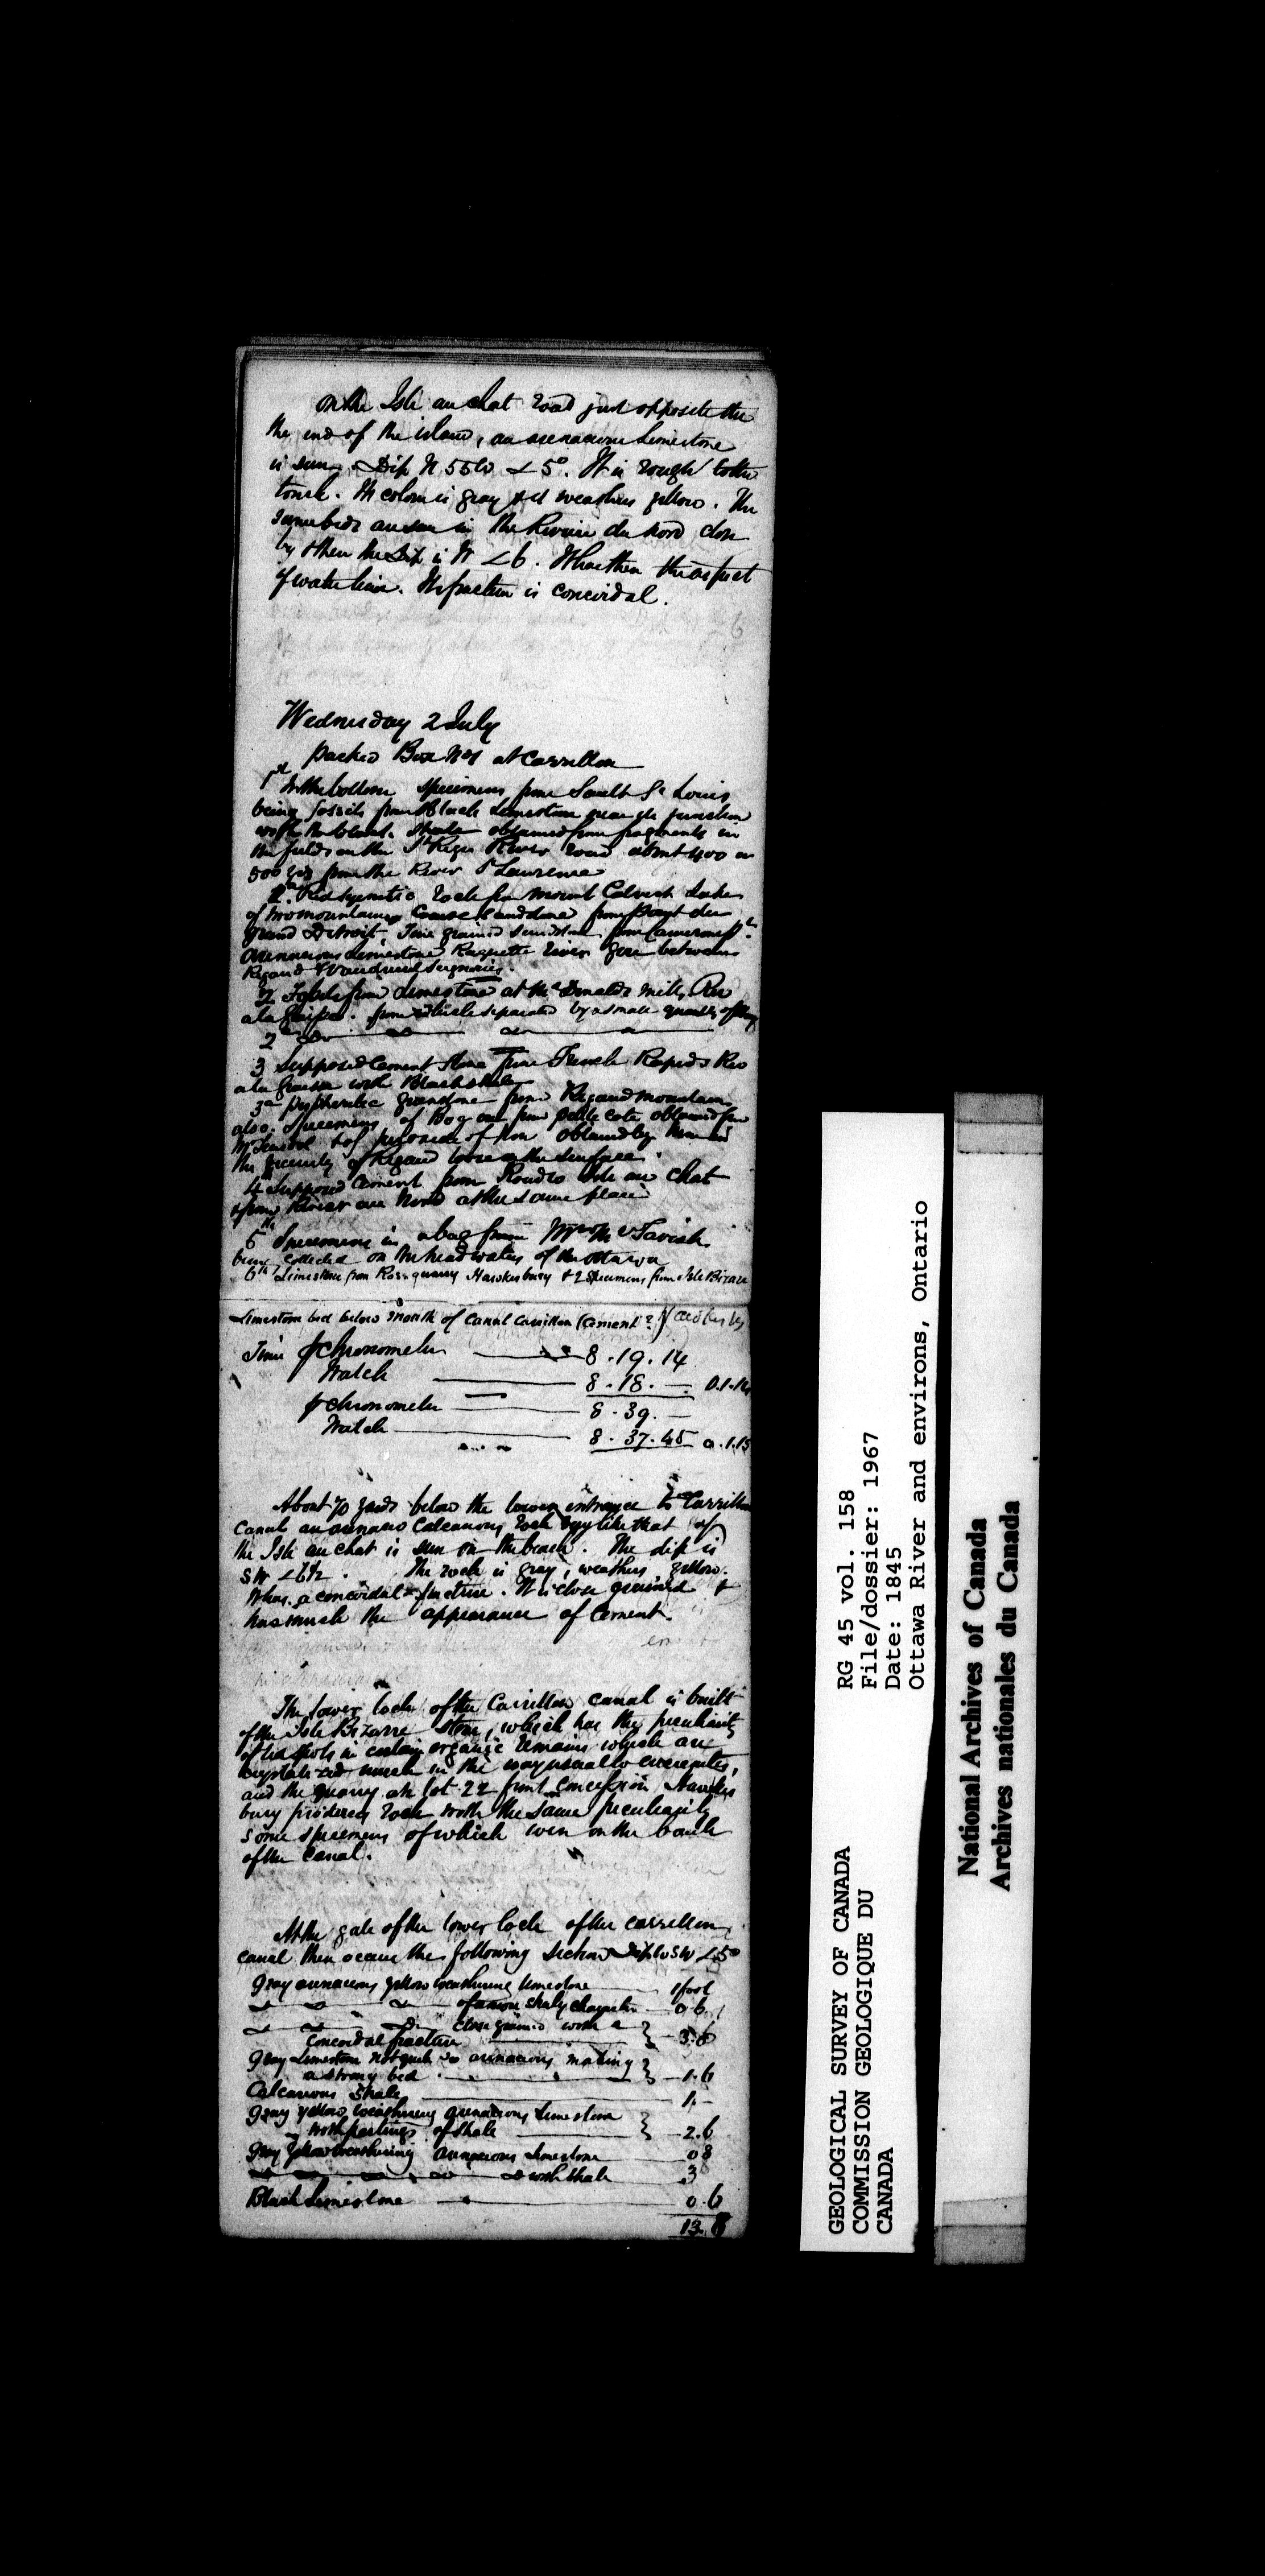 On the Isle au chat road just opposite the
the end of the island, an arenaceous limestone
is seen. Dip N 55 W ∠ 5°. It is rough to the
touch. Its colour is gray & it weathers yellow. The
same beds are seen in the Riviere du Nord close
by & then the dip is W ∠ 6. It has then the aspect
of water lime. Its fracture is concoidal.
Wednesday 2 July
packed Box No 1 at Carrillon
1st In the bottom specimens from Sault St Louis
being fossils from Black limestone near its junction
with the black shale obtained from fragments in
the fields on the St Regis River road about 400 or
500 yds from the River St Lawrence
Red syenitic rock from Mount Calvert Lake
of two mountains Coarse sandstone from Point du
grand Detroit, fine grained sandstone from Camerons Pt
Arenaceous limestone Raquette River line between
Rigaud & Vaudreuil Seignories.
2 Fossils from limestone at McDonalds mills, Riv
a la Graisse. from which separated by a small quantity of
2
3 Supposed Cement stone from French Rapids Riv
a la Graisse with Black shale
3a Porphyritic greenstone from Rigaud mountain
also. Specimens of Bog ore from petite cote obtained from
Mr & of peroxide of Iron obtained by him in
the vicinity of Rigaud loose on the surface.
4 Supposed Cement from Road to Isle au Chat
& from Riviere au Nord at the same place
5th Specimens in a bag from Mr McTavish
being collected on the head waters of the Ottawa
6th Limestone from Ross quarry Hawkesbury & 2 specimens from Isle Bizare
Limestone bed below mouth of Canal Carrillon (Cement?)
Time chronometer 8.19.14
Watch 8.18. — 0.1.14
chronometer 8.39. —
Watch 8.37.45 0.1.15
About 70 yards below the lower entrance to Carrillon
Canal an arenaceo calcareous rock very like that of
the Isle au chat is seen on the beach. The dip is
SW ∠ 6½. The rock is gray, weathers yellow.
It has a concoidal fracture. It is close grained &
has much the appearance of Cement.
The lower lock of the Carrillon canal is built
of the Isle Bizarre stone, which has the peculiarity
of red spots in certain organic remains which are
crystalized much in the way usual to encrinites,
and the quarry at lot 22 front concession Hawkes
bury produces rock with the same peculiarity
some specimens of which were on the bank
of the canal.
At the gate of the lower lock of the carrillon
canal then occurs the following section Dip W SW ∠ 5°
Gray arenaceous yellow weathering limestone 1 foot
of a more shaly character 0.6
close grained with a
concoidal fracture 3.6
Gray limestone not quite so arenaceous making
a strong bed 1.6
Calcareous shale 1. —
Gray yellow weathering arenaceous limestone
with partings of shale 2.6
Gray yellow weathering arenaceous limestone 0 8
with shale 3
Black Limestone 0.6
13. 8
GEOLOGICAL SURVEY OF CANADA
COMMISSION GEOLOGIQUE DU
CANADA
RG 45 vol. 158
File/dossier: 1967
Date: 1845
Ottawa River and environs, Ontario
National Archives of Canada
Archives nationales du Canada